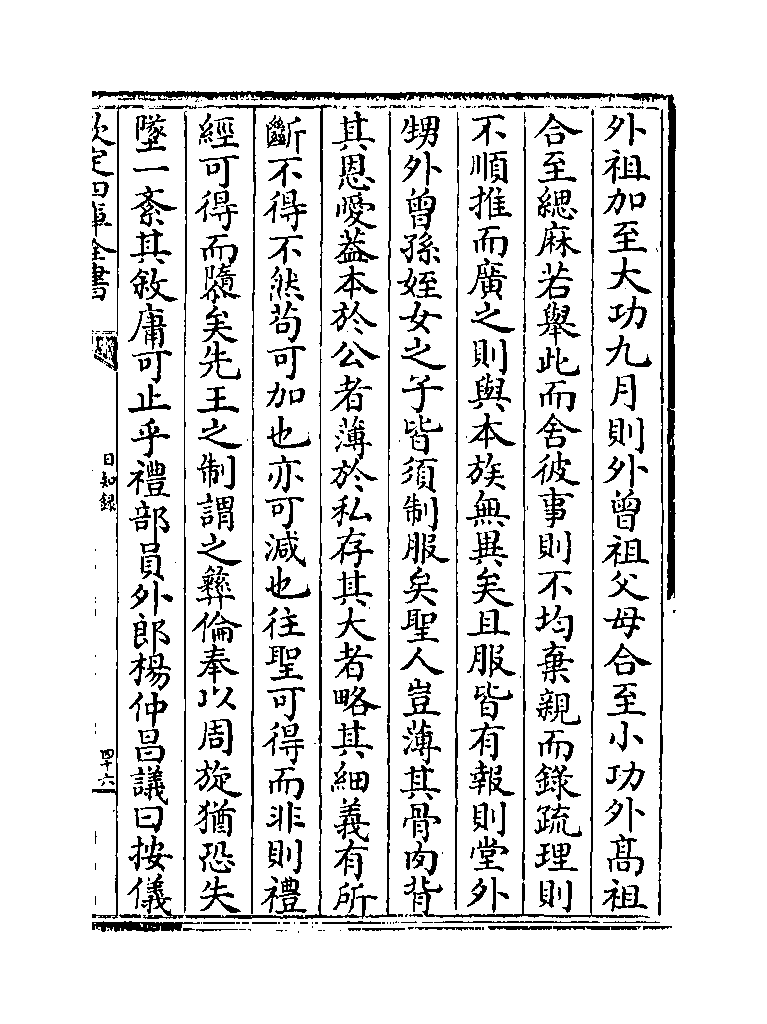 外祖加至大功九月則外曾祖父母合至小功外髙祖
合至緦麻若舉此而舍彼事則不均棄親而錄疏理則
不順推而廣之則與本族無異矣且服皆有報則堂外
甥外曾孫姪女之子皆須制服矣聖人豈薄其骨肉背
其恩愛葢本於公者薄於私存其大者略其細義有所
斷不得不然苟可加也亦可減也往聖可得而非則禮
經可得而隳矣先王之制謂之彝倫奉以周旋猶恐失
墜一紊其敘庸可止乎禮部員外郎楊仲昌議曰按儀
欽定四庫全書
日知録
四十六